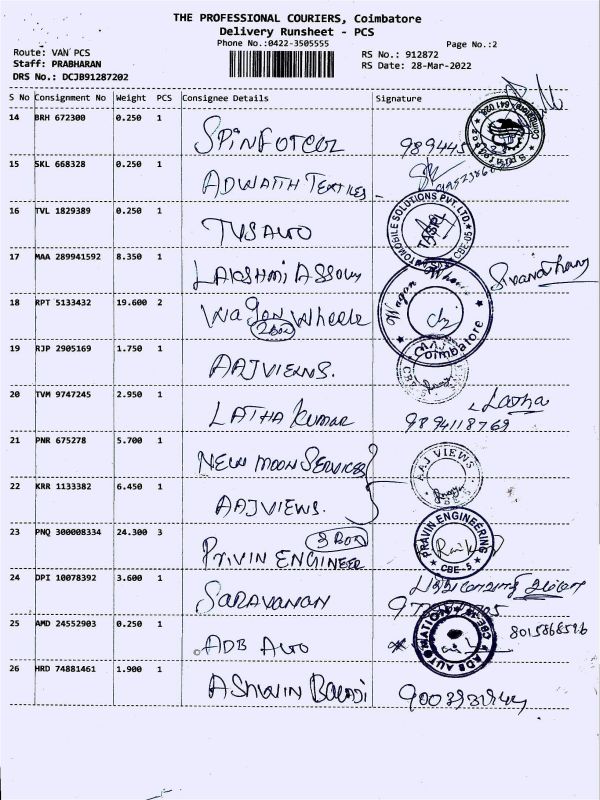 THE PROFESSIONAL COURIERS, Coimbatore
Delivery Runsheet - PCS
Phone No.:0422-3505555
Page No.:2
Route: VAN PCS
Staff: PRABHARAN
DRS No.: DCJB91287202
RS No.: 912872
RS Date: 28-Mar-2022
S No Consignment No Weight PCS Consignee Details Signature
14 BRH 672300 0.250 1
989445
15 SKL 668328 0.250 1
ADWAITH TEXTILES
16 TVL 1829389 0.250 1
TVS AUTO
AUTOMOBILE SOLUTIONS PVT. LTD. CBE-05
17 MAA 289941592 8.350 1
LAKSHMI
18 RPT 5133432 19.600 2
Wagon Wheels
2 Box
Wagon Wheels Coimbatore
19 RJP 2905169 1.750 1
AAJ VIEWS.
20 TVM 9747245 2.950 1
LATHA Kumar
Latha
9894118769
21 PNR 675278 5.700 1
NEW MOON SERVICES
AAJ VIEWS
22 KRR 1133382 6.450 1
AAJ VIEWS.
23 PNQ 300008334 24.300 3
3 Box
PRIVIN ENGINEER
PRAVIN ENGINEERING CBE-5
24 DPI 10078392 3.600 1
SARAVANAN
25 AMD 24552903 0.250 1
ADB AUTO
ADB AUTOMATION CBE
26 HRD 74881461 1.900 1
ASHWIN BALAJI